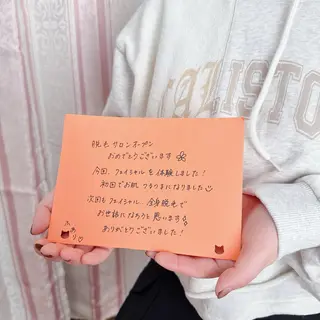 CALISTO
脱毛サロンオープン
おめでとうございます
今回、フェイシャルを体験しました!
初回でお肌つるつるになりました
次回もフェイシャル、全身脱毛で
お世話になろうと思います
ありがとうございました!